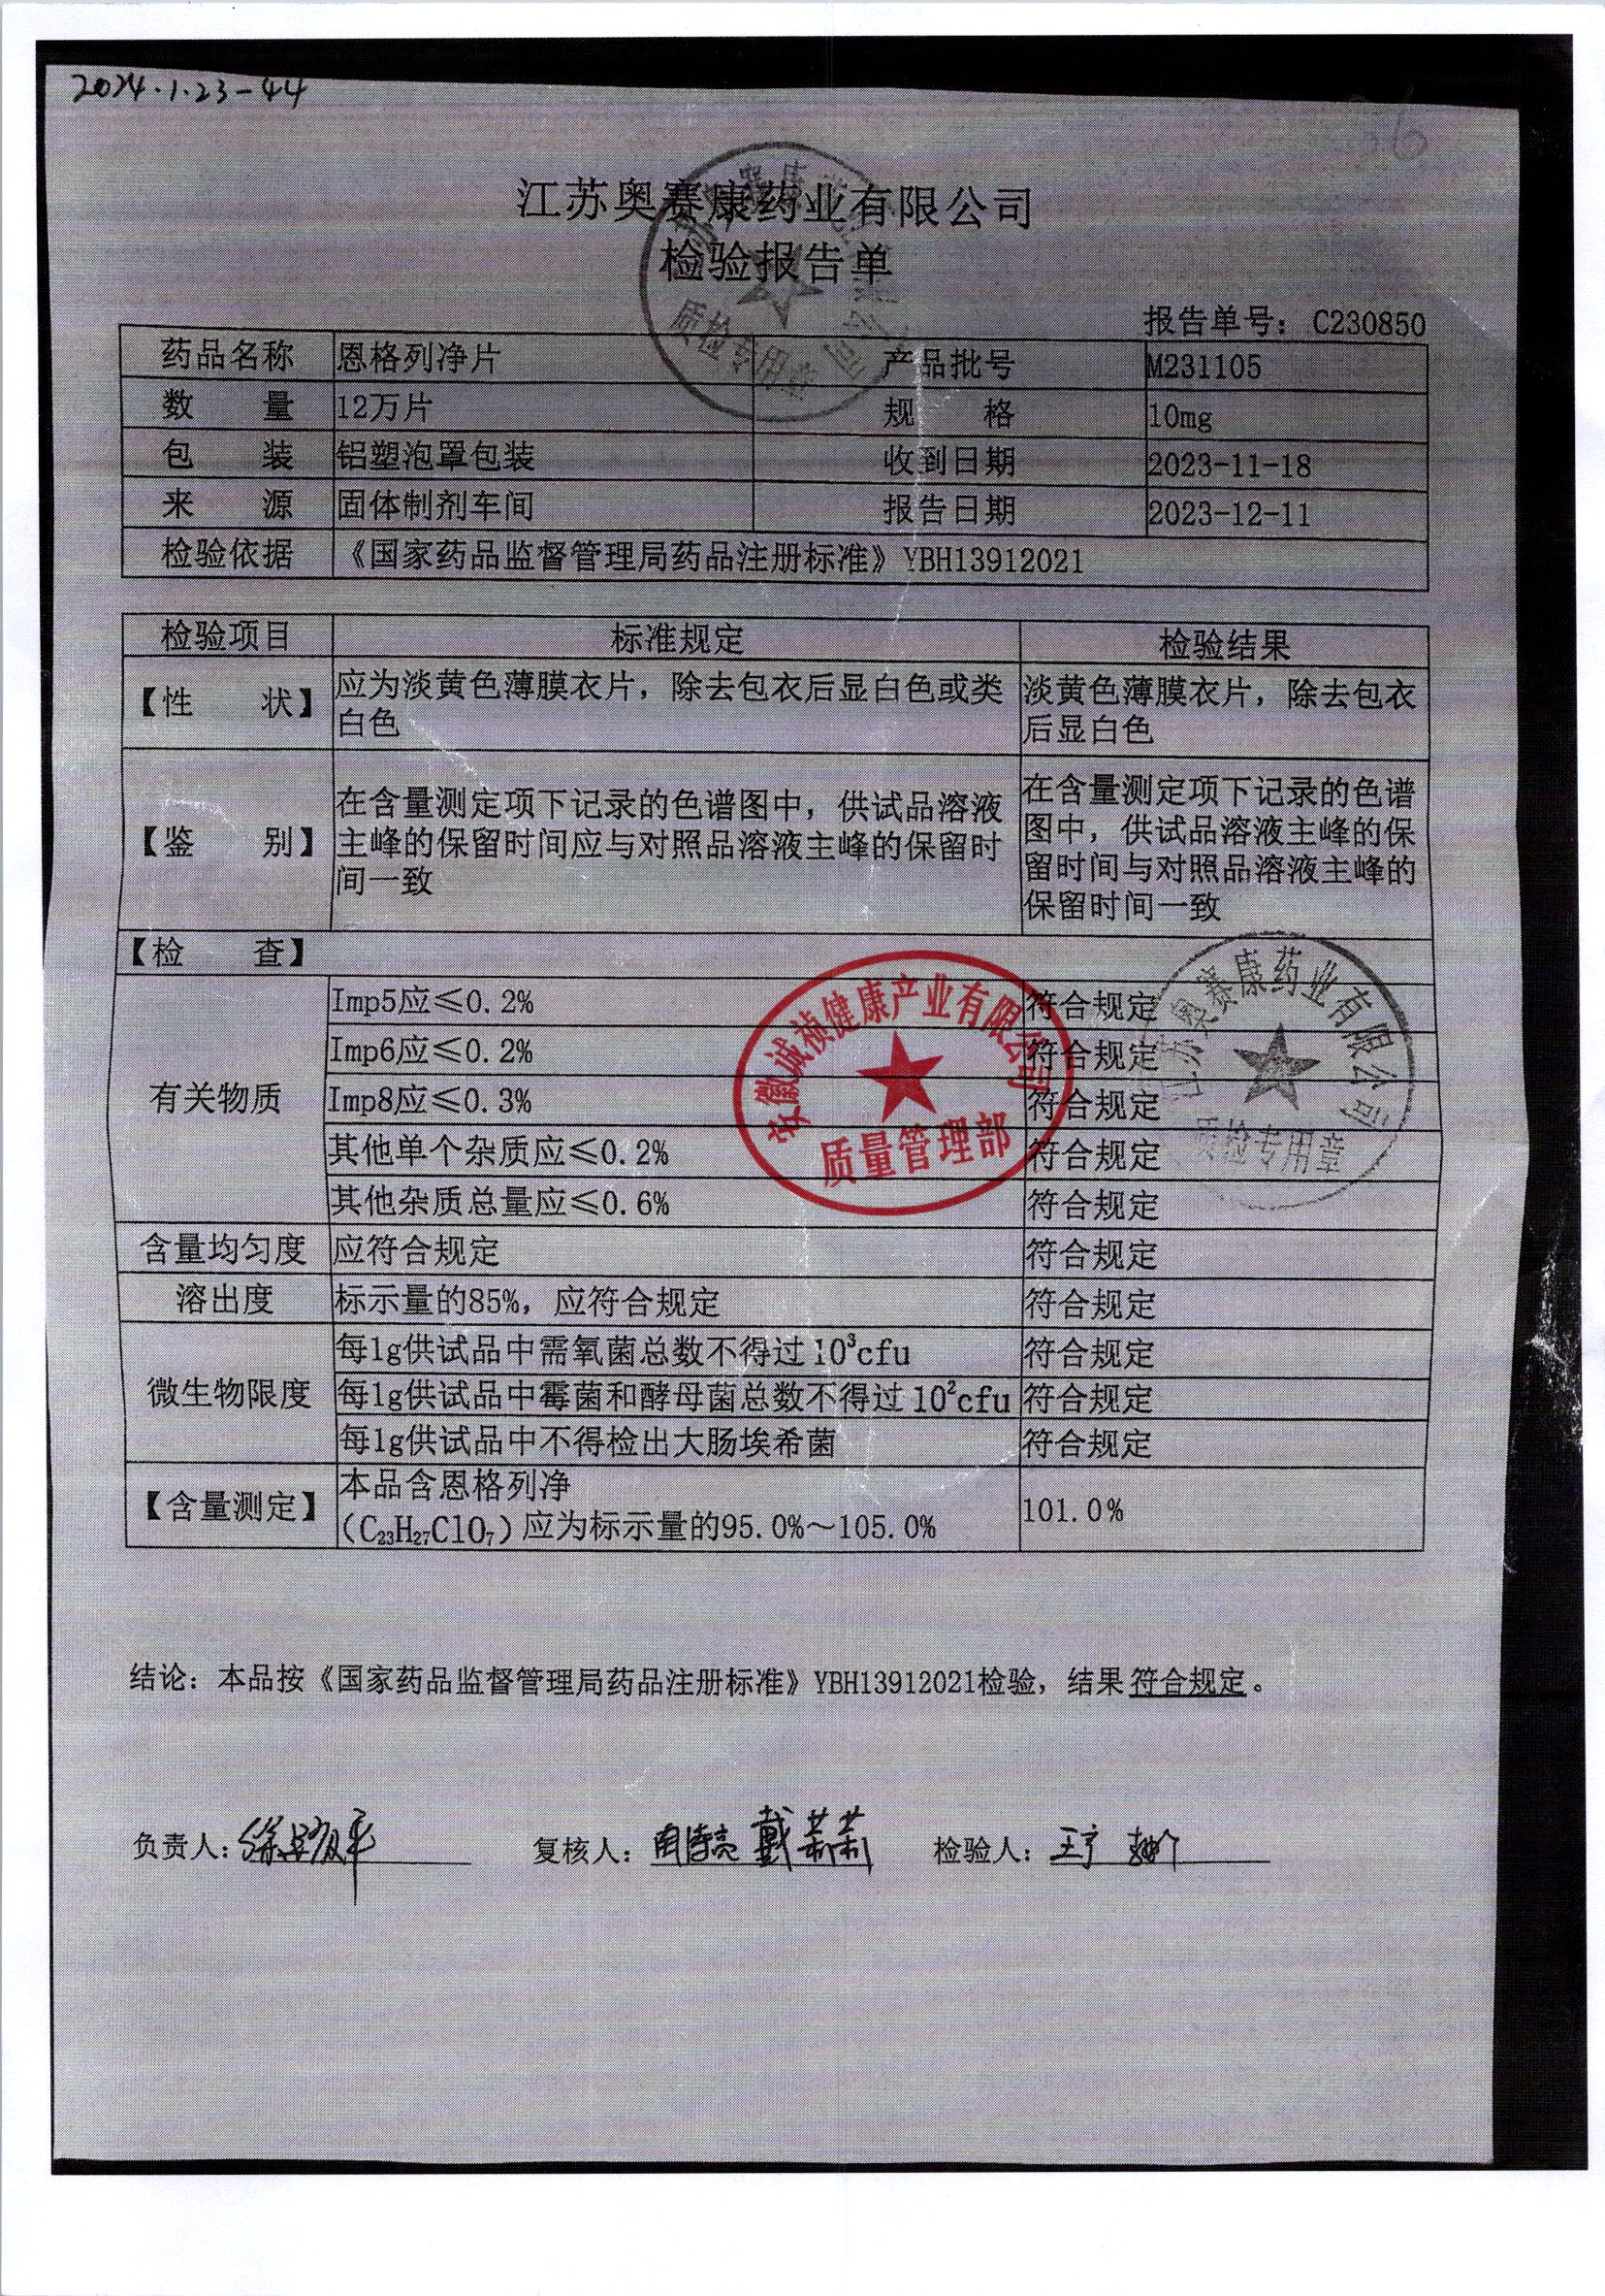 2024.1.23-44
江苏奥赛康药业有限公司
检验报告单
报告单号： C230850
药品名称 恩格列净片 产品批号 M231105
数 量 12万片 规 格 10mg
包 装 铝塑泡罩包装 收到日期 2023-11-18
来 源 固体制剂车间 报告日期 2023-12-11
检验依据 《国家药品监督管理局药品注册标准》YBH13912021
检验项目 标准规定 检验结果
【性 状】 应为淡黄色薄膜衣片，除去包衣后显白色或类 淡黄色薄膜衣片，除去包衣
白色 后显白色
【鉴 别】 在含量测定项下记录的色谱图中，供试品溶液 在含量测定项下记录的色谱
主峰的保留时间应与对照品溶液主峰的保留时 图中，供试品溶液主峰的保
间一致 留时间与对照品溶液主峰的
保留时间一致
【检 查】
有关物质 Imp5应≤0.2% 符合规定
Imp6应≤0.2% 符合规定
Imp8应≤0.3% 符合规定
其他单个杂质应≤0.2% 符合规定
其他杂质总量应≤0.6% 符合规定
安徽诚祯健康产业有限公司
质量管理部
江苏奥赛康药业有限公司
质检专用章
含量均匀度 应符合规定 符合规定
溶出度 标示量的85%，应符合规定 符合规定
微生物限度 每1g供试品中需氧菌总数不得过10³cfu 符合规定
每1g供试品中霉菌和酵母菌总数不得过10²cfu 符合规定
每1g供试品中不得检出大肠埃希菌 符合规定
【含量测定】 本品含恩格列净 101.0%
（C₂₃H₂₇ClO₇）应为标示量的95.0%～105.0%
结论：本品按《国家药品监督管理局药品注册标准》YBH13912021检验，结果符合规定。
负责人： 复核人： 戴莉莉 检验人：